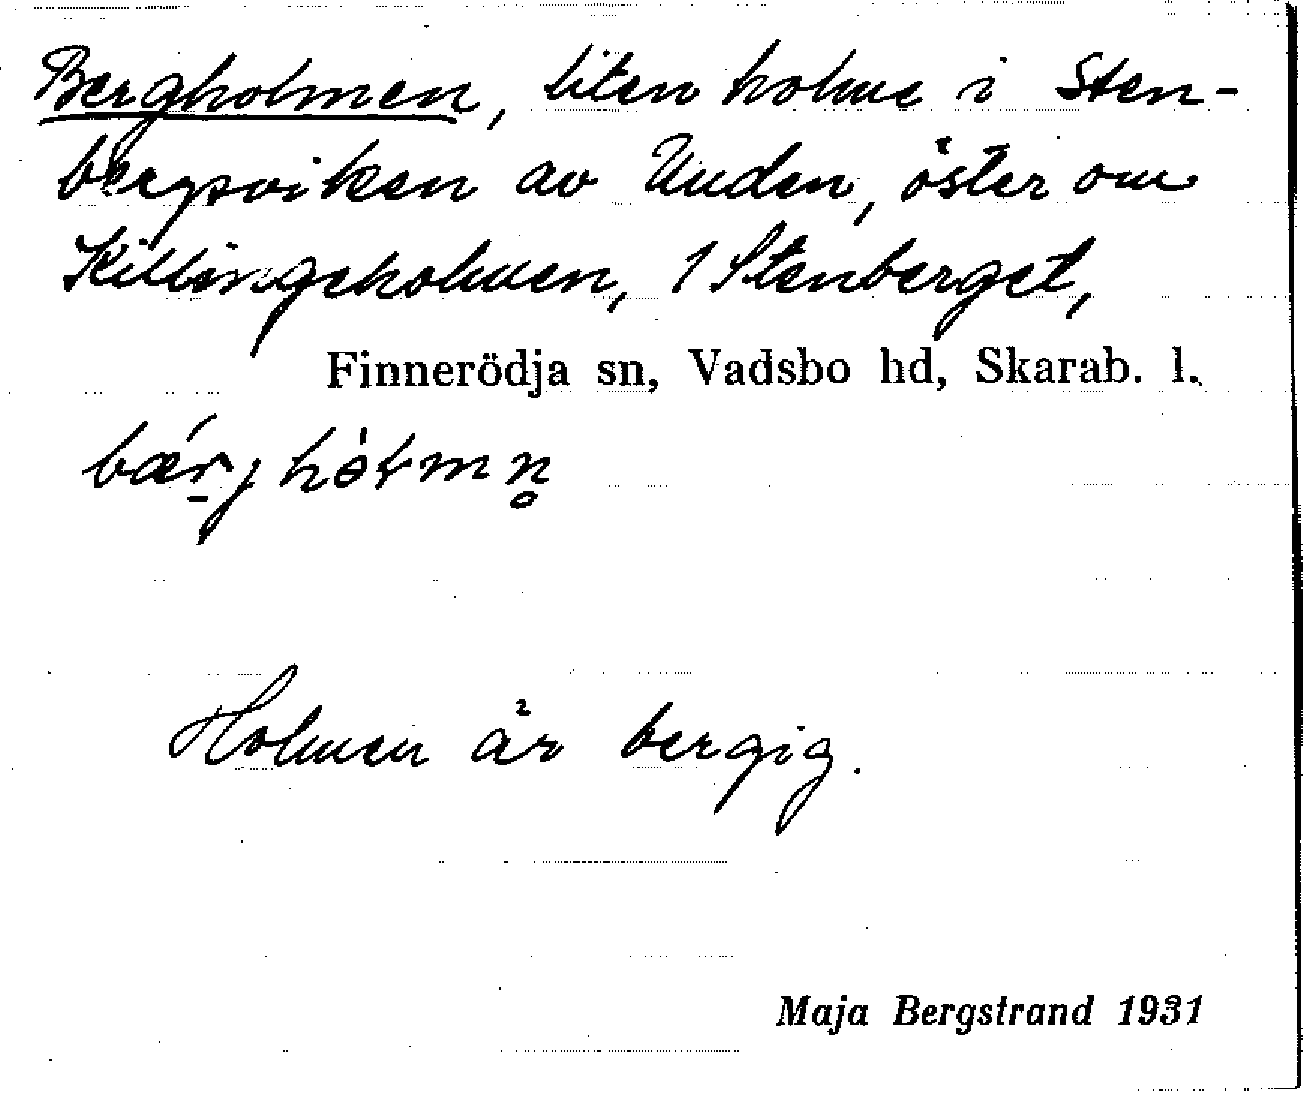 Bergholmen, liten holme i Sten-
bergsviken av Unden, öster om
Killingeholmen, 1 Stenberget,
Finnerödja sn, Vadsbo hd, Skarab. l.
Holmen är bergig.
Maja Bergstrand 1931